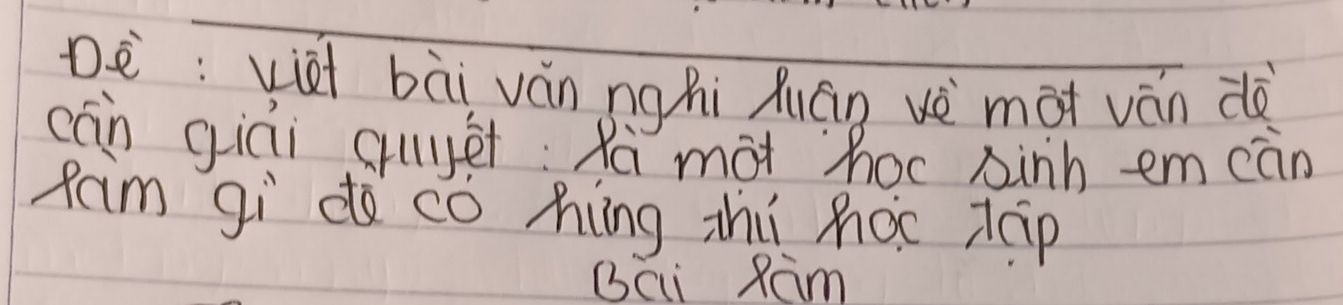 Đề : viết bài văn nghị luận về một vấn đề
cần giải quyết : là một học sinh em cần
làm gì để có hứng thú học tập
Bài làm